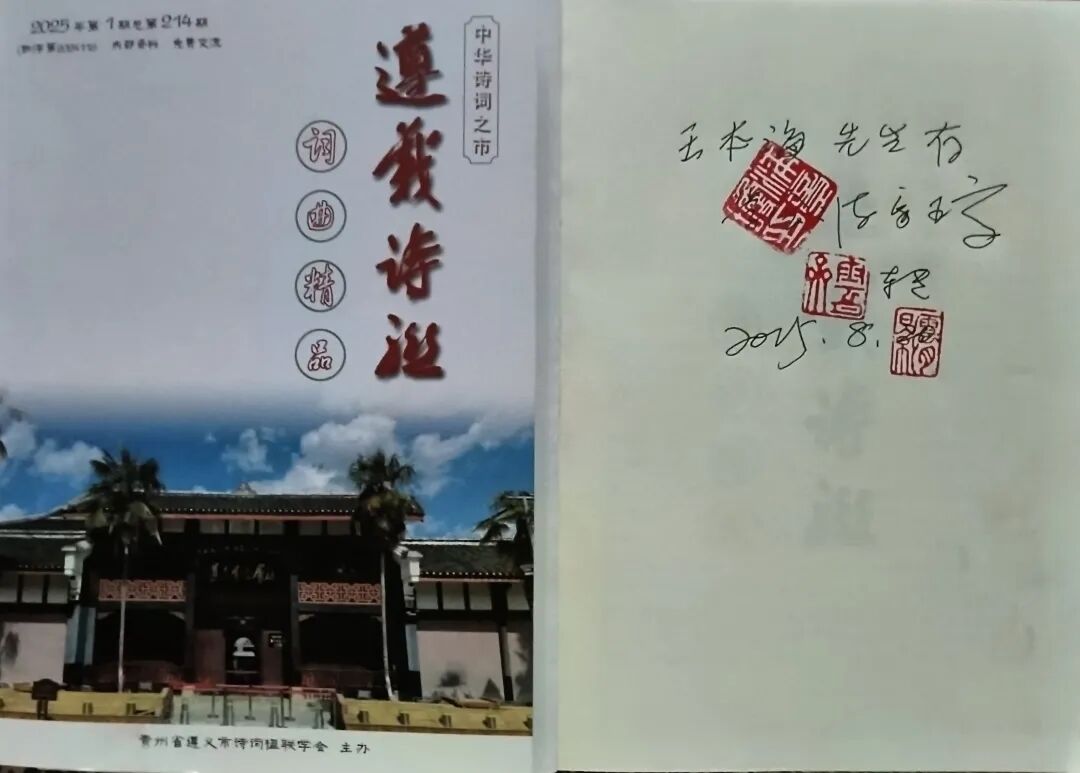 2025年第1期总第214期
内部资料 免费交流
中华诗词之市
遵義诗联
词曲精品
贵州省遵义市诗词楹联学会 主办
王本海 先生存
2025.8.